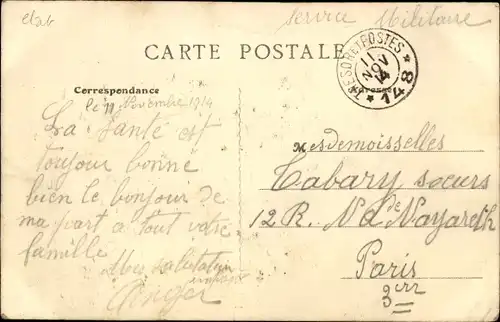 etab
Service Militaire
CARTE POSTALE
TRESOR ET POSTES
11
NOV
14
* 148 *
Correspondance
Adresse
le 11 Novembre 1914
La Santé est
toujour bonne
bien le bonjour de
ma part a tout votre
famille
Mes salutation
Mesdemoisselles
Cabary sœurs
12 R. N. de Nazareth
Paris
3